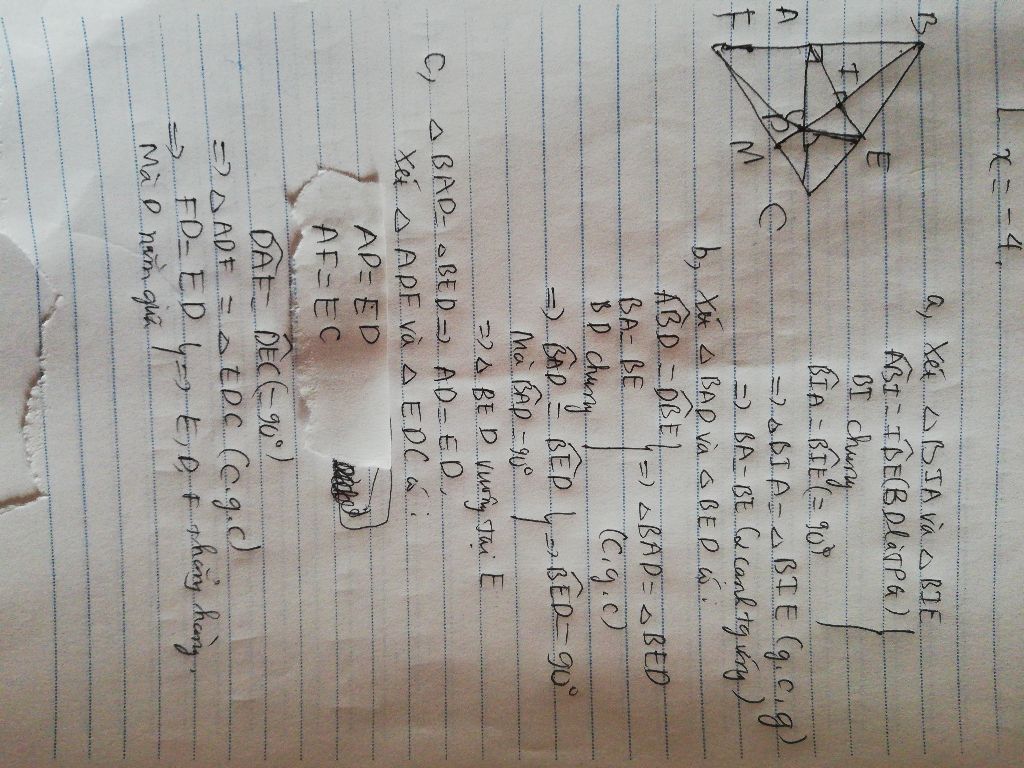 x = -4.
B
A
F
I
E
D
M
C
a, Xét △BIA và △BIE
ABI = IBE (BD là tpg)
BI chung
BIA = BIE (= 90°
=> △BIA = △BIE (g.c.g)
=> BA = BE (2 cạnh tg ứng)
b, Xét △BAD và △BED có:
ABD = DBE
BA = BE => △BAD = △BED
BD chung (c.g.c)
=> BAD = BED => BED = 90°
Mà BAD = 90°
=> △BED vuông tại E
c, △BAD = △BED => AD = ED.
Xét △ADF và △EDC có:
AD = ED
AF = EC
DAF = DEC (= 90°)
=> △ADF = △EDC (c.g.c)
=> FD = ED => E, D, F thẳng hàng.
Mà D nằm giữa